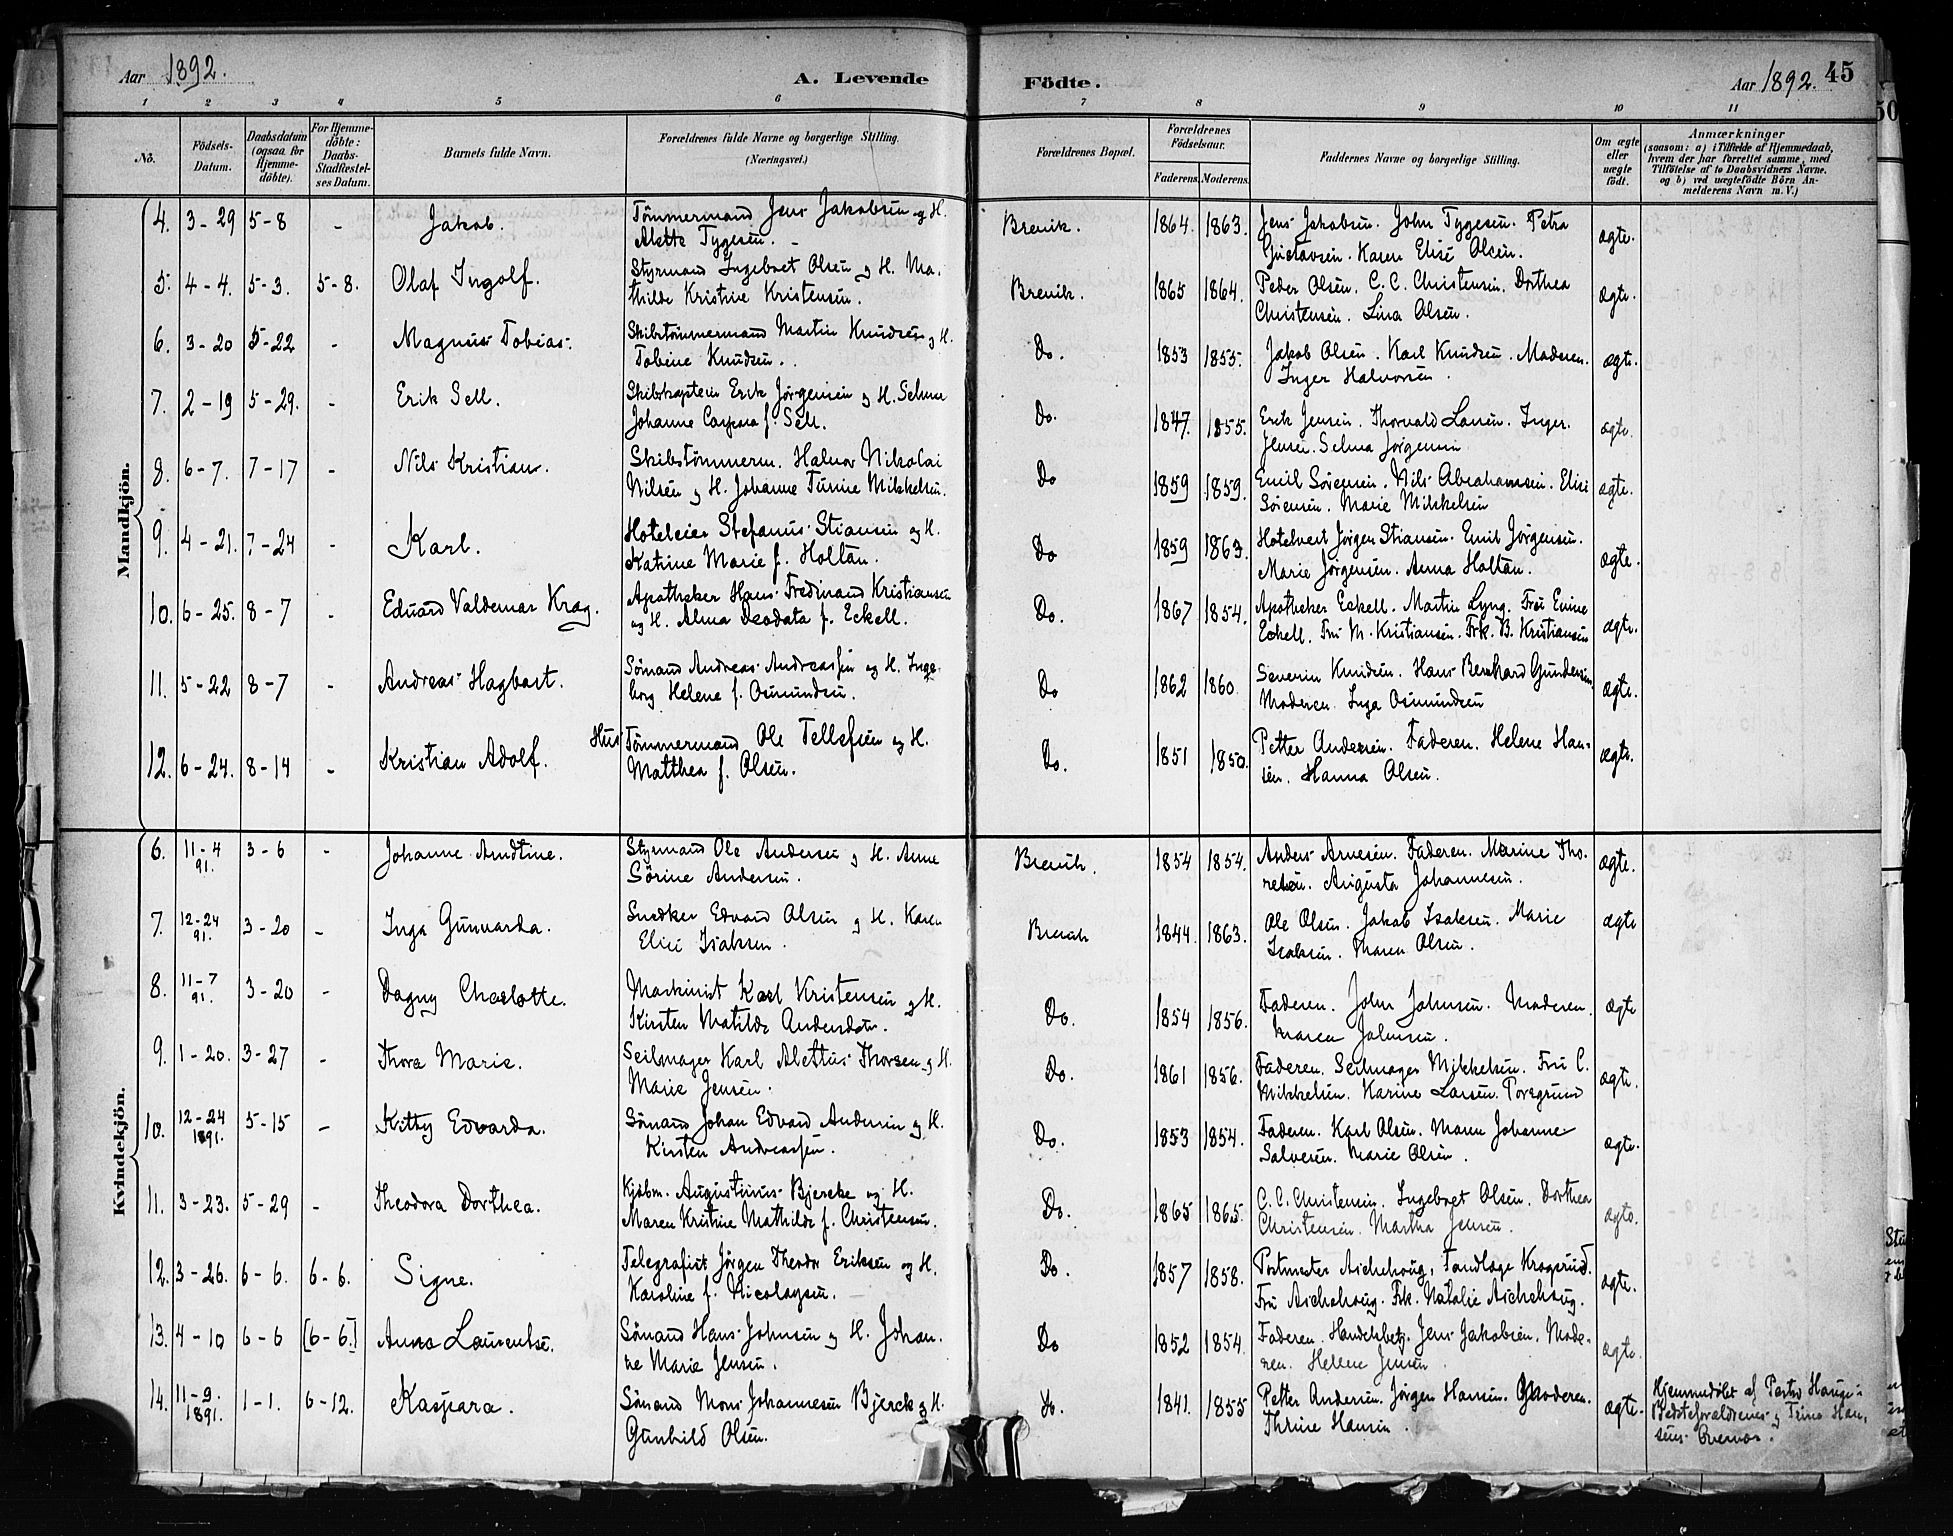 Aar 1892. A. Levende Födte. Aar 1892. 45
1 2 3 4 5 6 7 8 9 10 11
No. Födsels-Datum. Daabsdatum (ogsaa for Hjemme-döbte). For Hjemme-döbte: Daabs-Stadfæstel-ses Datum. Barnets fulde Navn. Forældrenes fulde Navne og borgerlige Stilling. (Næringsvei.) Forældrenes Bopæl. Forældrenes Födselsaar. Faderens. Moderens. Faddernes Navne og borgerlige Stilling. Om ægte eller uægte födt. Anmærkninger (saasom: a) i Tilfælde af Hjemmedaab, hvem der har forrettet samme, med Tilföielse af to Daabsvidners Navne, og b) ved uægtefödte Börn An-melderens Navn m. V.)
Mandkjön.
4. 3-29 5-8 - Jakob. Tømmermand Jens Jakobsen og H. Brevik. 1864. 1863. Jens Jakobsen. John Tygesen. Petra ægte.
Alette Tygesen. - Gustavsen. Karen Elise Olsen.
5. 4-4. 5-3. 5-8. Olaf Ingolf. Styrmand Ingebret Olsen og H. Ma- Brevik. 1865 1864. Peder Olsen. C. C. Christensen. Dorthea ægte.
thilde Kristine Kristensen. Christensen. Lina Olsen.
6. 3-20 5-22 - Magnus Tobias. Skibstømmermand Martin Knudsen og H. Do. 1853 1855. Jakob Olsen. Karl Knudsen. Moderen. ægte.
Tobine Knudsen. Inger Halvorsen.
7. 2-19 5-29. - Erik Sell. Skibskaptein Erik Jørgensen og H. Selma Do. 1847. 1855. Erik Jensen. Thorvald Larsen. Inger ægte.
Johanne Caspara f. Sell. Jensen. Selma Jørgensen
8. 6-7. 7-17 - Nils Kristian. Skibstømmerm. Halvor Nikolai Do 1859 1859. Emil Sørensen. Nils Abrahamsen. Elise ægte.
Nilsen og H. Johanne Turine Mikkelsen. Sørensen. Marie Mikkelsen
9. 4-21. 7-24 - Karl. Hoteleier Stefanus Stiansen og H. Do 1859 1863. Hotelvert Jørgen Stiansen. Emil Jørgensen. ægte.
Katrine Marie f. Holtan. Marie Jørgensen. Anna Holtan.
10. 6-25. 8-7 - Eduard Valdemar Krag. Apotheker Hans Ferdinand Kristiansen Do. 1867 1854. Apotheker Eckell. Martin Lyng. Fru Evine ægte.
og H. Alma Deodata f. Eckell. Eckell. Fru M. Kristiansen. Frk. B. Kristiansen
11. 5-22 8-7 - Andreas Hagbart. Sømand Andreas Andreassen og H. Inge- Do 1862 1860 Severin Knudsen. Hans Bernhard Gundersen ægte.
borg Helene f. Osmundsen. Moderen. Inga Osmundsen
12. 6-24. 8-14 - Kristian Adolf. Hus Tømmermand Ole Tellefsen og H. Do. 1851 1850. Petter Andersen. Faderen. Helene Han- ægte.
Matthea f. Olsen. sen. Hanna Olsen.
Kvindekjön.
6. 11-4 91. 3-6 - Johanne Arndtine. Styrmand Ole Andersen og H. Anne Brevik. 1854 1854. Anders Arnesen. Faderen. Marine Tho- ægte.
Sørine Andersen. resen. Augusta Johannesen.
7. 12-24 91. 3-20 - Inga Gunvarda. Snedker Edvard Olsen og H. Karen Brevik 1844. 1863. Ole Olsen. Jakob Isaksen. Marie ægte
Elise Isaksen. Isaksen. Maren Olsen.
8. 11-7 91. 3-20 - Dagny Charlotte. Maskinist Karl Kristensen og H. Do. 1854 1856. Faderen. John Johnsen. Moderen. ægte
Kirsten Matilde Andersdatr. Maren Johnsen.
9. 1-20. 3-27 - Thora Marie. Seilmager Karl Alettus Thorsen og H. Do. 1861 1856. Faderen. Seilmager Mikkelsen. Fru C. ægte.
Marie Jensen. Mikkelsen. Karine Larsen. Porsgrund
10. 12-24 1891. 5-15 - Kitty Edvarda. Sømand Johan Edvard Andersen og H. Do. 1853 1854. Faderen. Karl Olsen. Maren Johanne ægte.
Kirsten Andreassen. Salvesen. Marie Olsen.
11. 3-23. 5-29 - Theodora Dorthea. Kjøbm. Augustinus Bjercke og H. Do. 1865 1865. C. C. Christensen. Ingebret Olsen. Dorthea ægte.
Maren Kristine Mathilde f. Christensen. Christensen. Martha Jensen.
12. 3-26. 6-6. 6-6. Signe. Telegrafist Jörgen Theodor Eriksen og H. Do. 1857 1858. Postmester Aschehoug. Tandlæge Kragsrud. ægte.
Karoline f. Nicolaysen. Fru Aschehoug. Frk. Natalie Aschehoug.
13. 4-10 6-6 [6-6.] Anna Laurentse. Sømand Hans Johnsen og H. Johan- Do 1852 1854. Faderen. Handelsbetj. Jens Jakobsen. Mode- ægte.
ne Marie Jensen. ren. Hellene Jensen
14. 11-9. 1891. 1-1. 6-12. Kaspara. Sømand Mons Johannesen Bjerck og H. 1841. 1855 Petter Andersen. Jørgen Hansen. Moderen. ægte. Hjemmedøbt af Pastor Hauge.
Gunhild Olsen. Thrine Hansen. Bedsteforældrenes og Trine Han-
sens Overvær.